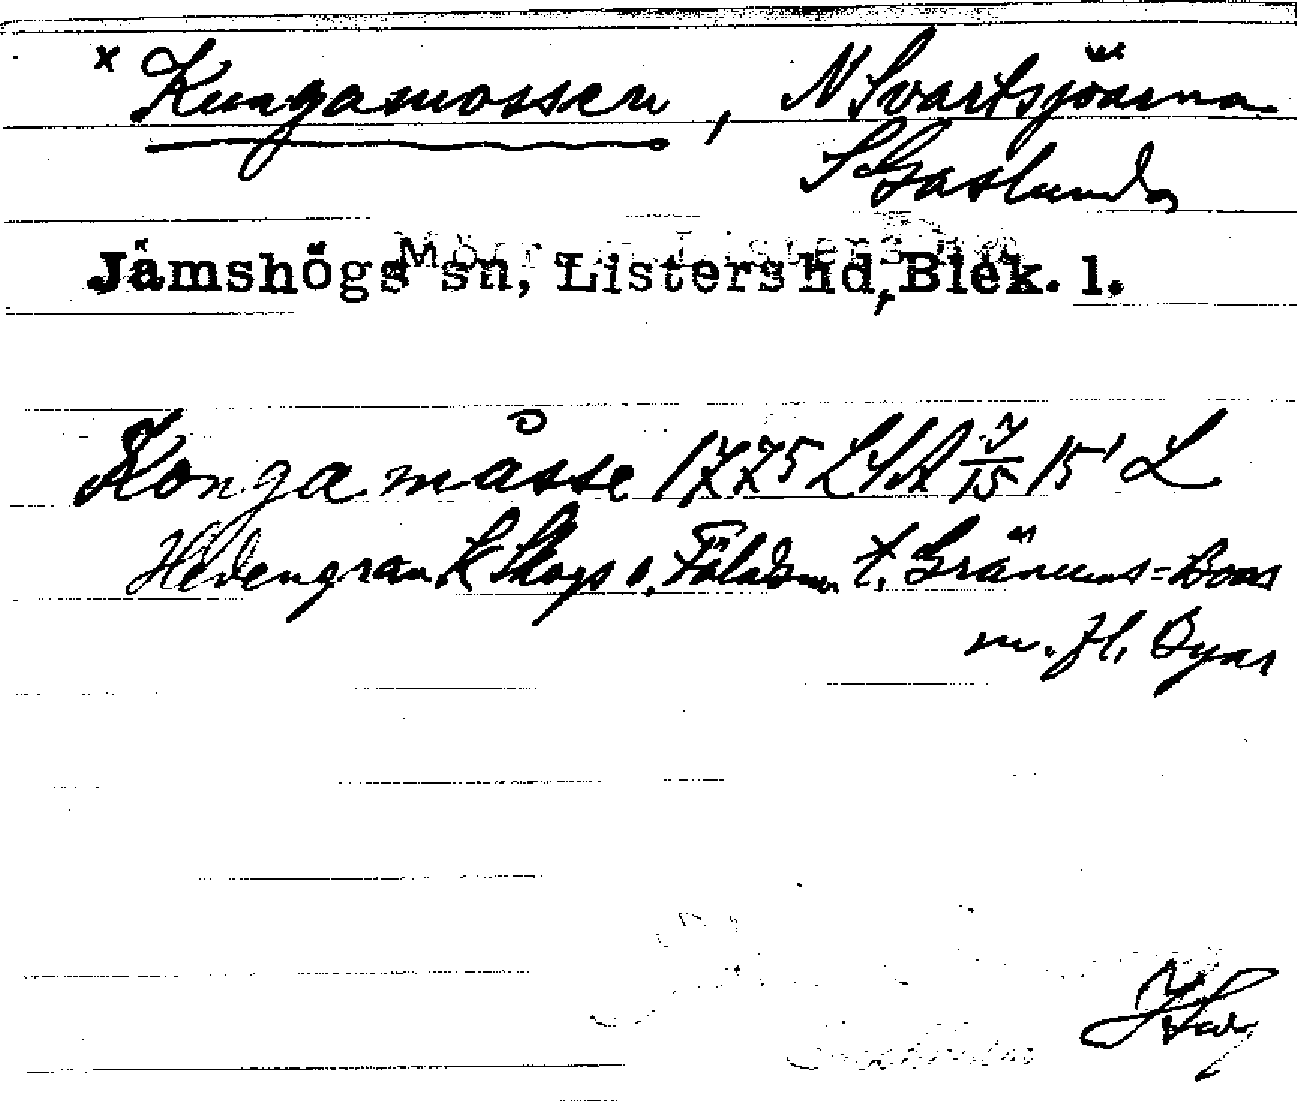 x Kungamossen, N Svartsjöarna
S Gaslunda
Jämshögs sn, Listers hd, Blek. l.
Konga måsse 1775 LSA 7/15 15' L
Hedengran K Skogs o. Fälads t. Gränums=Boas
m. fl. Byar